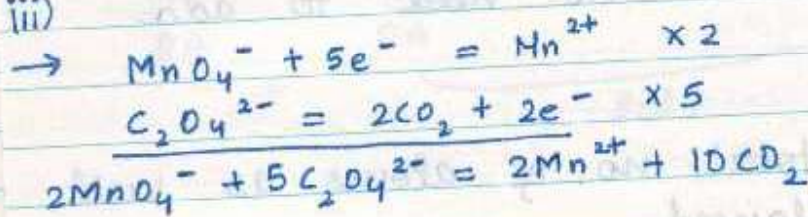 iii)
→ MnO₄⁻ + 5e⁻ = Mn²⁺ × 2
C₂O₄²⁻ = 2CO₂ + 2e⁻ × 5
2MnO₄⁻ + 5C₂O₄²⁻ = 2Mn²⁺ + 10CO₂